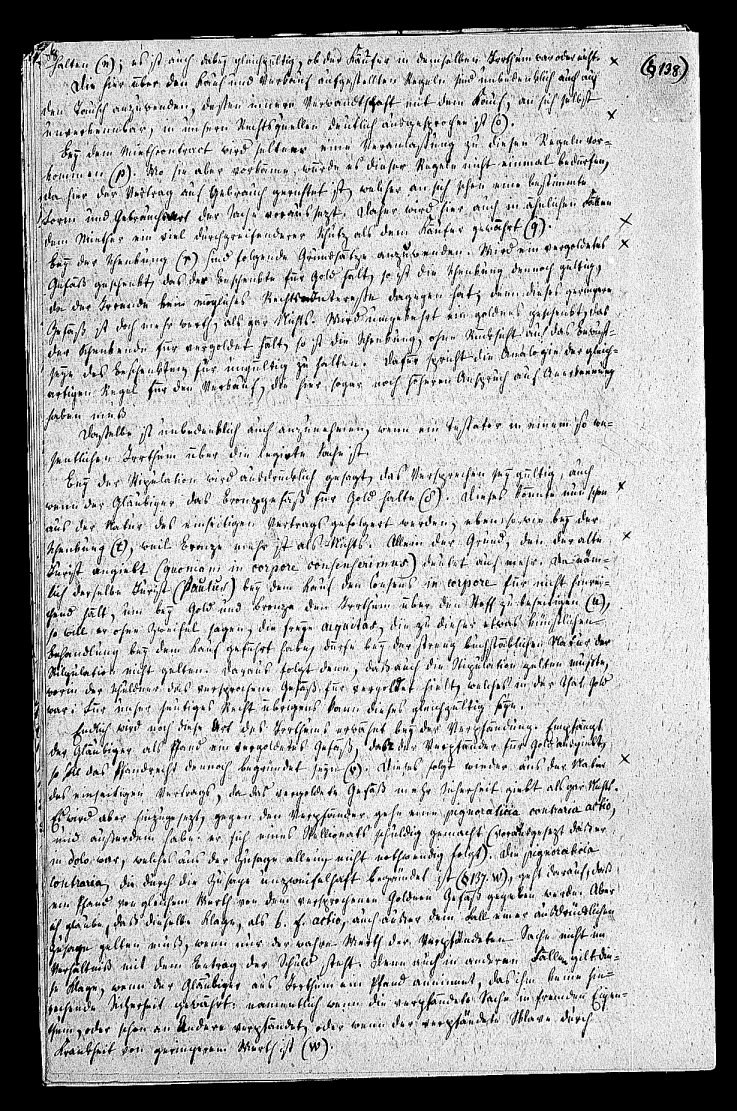 halten (n); es ist auch dabey gleichgültig, ob der Käufer in demselben Irrthum war oder nicht. ×
(§ 138)
Die hier über den Kauf und Verkauf aufgestellten Regeln sind unbedenklich auch auf
den Tausch anzuwenden, dessen innere Verwandtschaft mit dem Kauf, an sich selbst
unverkennbar, in unsern Rechtsquellen deutlich ausgesprochen ist (o). ×
Bey dem Miethcontract wird seltner eine Veranlassung zu diesen Regeln vor-
kommen (p). Wo sie aber vorkäme, würde es dieser Regeln nicht einmal bedürfen,
da hier der Vertrag auf Gebrauch gerichtet ist, welcher an sich schon eine bestimmte
Form und Gebrauchsart der Sache voraussetzt. Daher wird hier auch in ähnlichen Fällen
dem Miether ein viel durchgreifenderer Schutz als dem Käufer gewährt (q). ×
Bey der Schenkung (r) sind folgende Grundsätze anzuwenden. Wird ein vergoldetes ×
Gefäß geschenkt, das der Beschenkte für Gold hält, so ist die Schenkung dennoch gültig,
da der Irrende kein mögliches Rechtsinteresse dagegen hat, denn dieses geringere
Gefäß ist doch mehr werth, als gar Nichts. Wird umgekehrt ein goldenes geschenkt, das
der Schenkende für vergoldet hält, so ist die Schenkung, ohne Rücksicht auf das Bewußt-
seyn des Beschenkten für ungültig zu halten. Dafür spricht die Analogie der gleich-
artigen Regel für den Verkauf, die hier sogar noch höheren Anspruch auf Anerkennung
haben muß.
Dasselbe ist unbedenklich auch anzunehmen, wenn ein Testator in einem so we-
sentlichen Irrthum über die legirte Sache ist.
Bey der Stipulation wird ausdrücklich gesagt, das Versprechen sey gültig, auch
wenn der Gläubiger das Bronzegefäß für Gold halte (s). Dieses könnte nun schon ×
aus der Natur des einseitigen Vertrags gefolgert werden, eben so wie bey der
Schenkung (t), weil Bronze mehr ist als Nichts. Allein der Grund, den der alte ×
Jurist angiebt (quoniam in corpore consenserimus) deutet auf mehr. Da näm-
lich derselbe Jurist (Paulus) bey dem Kauf den Consens in corpore für nicht hinrei-
chend hält, um bey Gold und Bronze den Irrthum über den Stoff zu beseitigen (u),
so will er ohne Zweifel sagen, die freye aequitas, die zu dieser etwas künstlichen
Behandlung bey dem Kauf geführt habe, dürfe bey der streng buchstäblichen Natur der
Stipulation nicht gelten. Daraus folgt denn, daß auch die Stipulation gelten müßte,
worin der Schuldner das versprochene Gefäß für vergoldet hielt, welches in der That Gold
war. Für unser heutiges Recht übrigens kann dieses gleichgültig seyn.
Endlich wird noch diese Art des Irrthums erwähnt bey der Verpfändung. Empfängt
der Gläubiger als Pfand ein vergoldetes Gefäß, das der Verpfänder für Gold ausgiebt,
so soll das Pfandrecht dennoch begründet seyn (v). Dieses folgt wieder aus der Natur ×
des einseitigen Vertrags, da das vergoldete Gefäß mehr Sicherheit giebt als gar Nichts.
Es wird aber hinzugesetzt, gegen den Verpfänder gehe eine pigneraticia contraria actio,
und außerdem habe er sich eines Stellionats schuldig gemacht (vorausgesetzt daß er
in dolo war, welches aus der Zusage allein nicht nothwendig folgt). Die pigneraticia
contraria, die durch die Zusage unzweifelhaft begründet ist (§ 137. w), geht darauf, daß
ein Pfand von gleichem Werth von dem versprochenen Goldnen Gefäß gegeben werde. Aber
ich glaube, daß dieselbe Klage, als b. f. actio, auch außer dem Fall einer ausdrücklichen
Zusage gelten muß, wenn nur der wahre Werth der verpfändeten Sache nicht im
Verhältniß mit dem Betrag der Schuld steht. Denn auch in anderen Fällen gilt die-
se Klage, wenn der Gläubiger aus Irrthum ein Pfand annimmt, das ihm keine hin-
reichende Sicherheit gewährt: namentlich wenn die verpfändete Sache in fremden Eigen-
thum, oder schon an Andere verpfändet, oder wenn der verpfändete Sklave durch
Krankheit von geringerem Werth ist (w).